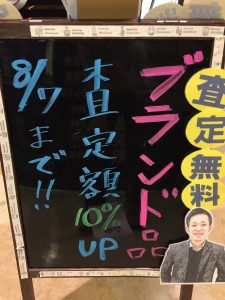 ブランド品
査定額
10%
UP
8/7まで!!
査定無料